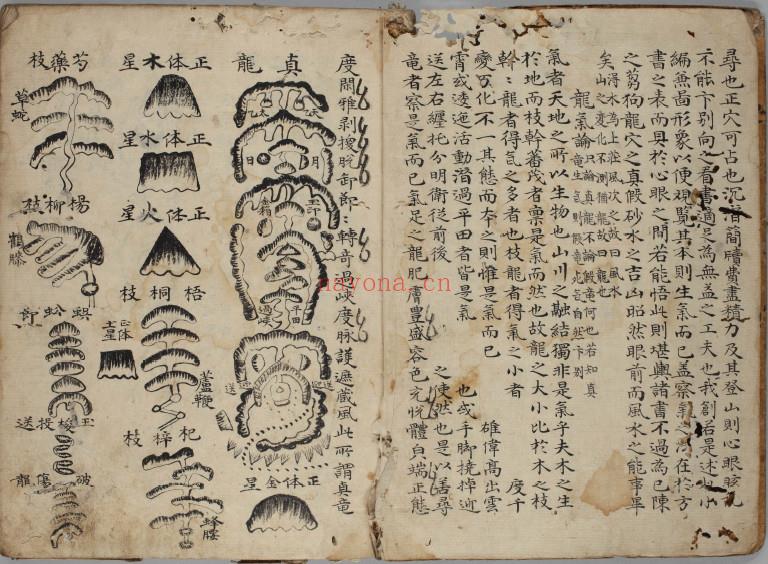 尋也正穴可占也沉
簡牘費盡積力及其登山則心眼眩
不能卞別向之看書適足為無益之工夫也我
若是述
編兼啚形象以便觀覽其本則生氣而已盖察氣之
在於方
書之表而具於心眼之間若能悟此則堪輿諸書不過為已陳
之蒭狗龍穴之真假砂水之吉凶昭然眼前而風水之能事畢
矣
得水為上藏風次之故曰風水
山之變化不測猶龍故曰龍也
龍氣論
氣者天地之所以生物也山川之融結獨非是氣乎夫木之生
於地而枝幹蕃茂者稟是氣而然也故龍之大小比於木之枝
幹〻龍者得氣之多者也枝龍者得氣之小者
度千
變万化不一其態而本之則惟是氣而已
雄偉高出雲
霄或逶迤活動潛過平田者皆是氣
也或手脚撓掉迎
送左右纏托分明衛從前後
之使然也是以善尋
竜者察是氣而已氣足之龍肥膚豊盛容色光悅體皃端正態
度閑雅剥換脫卸節〻轉奇過峽度脉護 藏風此所謂真竜
真龍
日
月
玉印
過峽
平田
迎送
迎送
正体金星
正体木星
正体水星
正体火星
梧桐枝
蘆鞭
杞梓枝
蜂腰
芍藥枝
草蛇
楊柳枝
鶴膝
蜈蚣節
正体土星
玉梭投送
破傷龍
nayona.cn